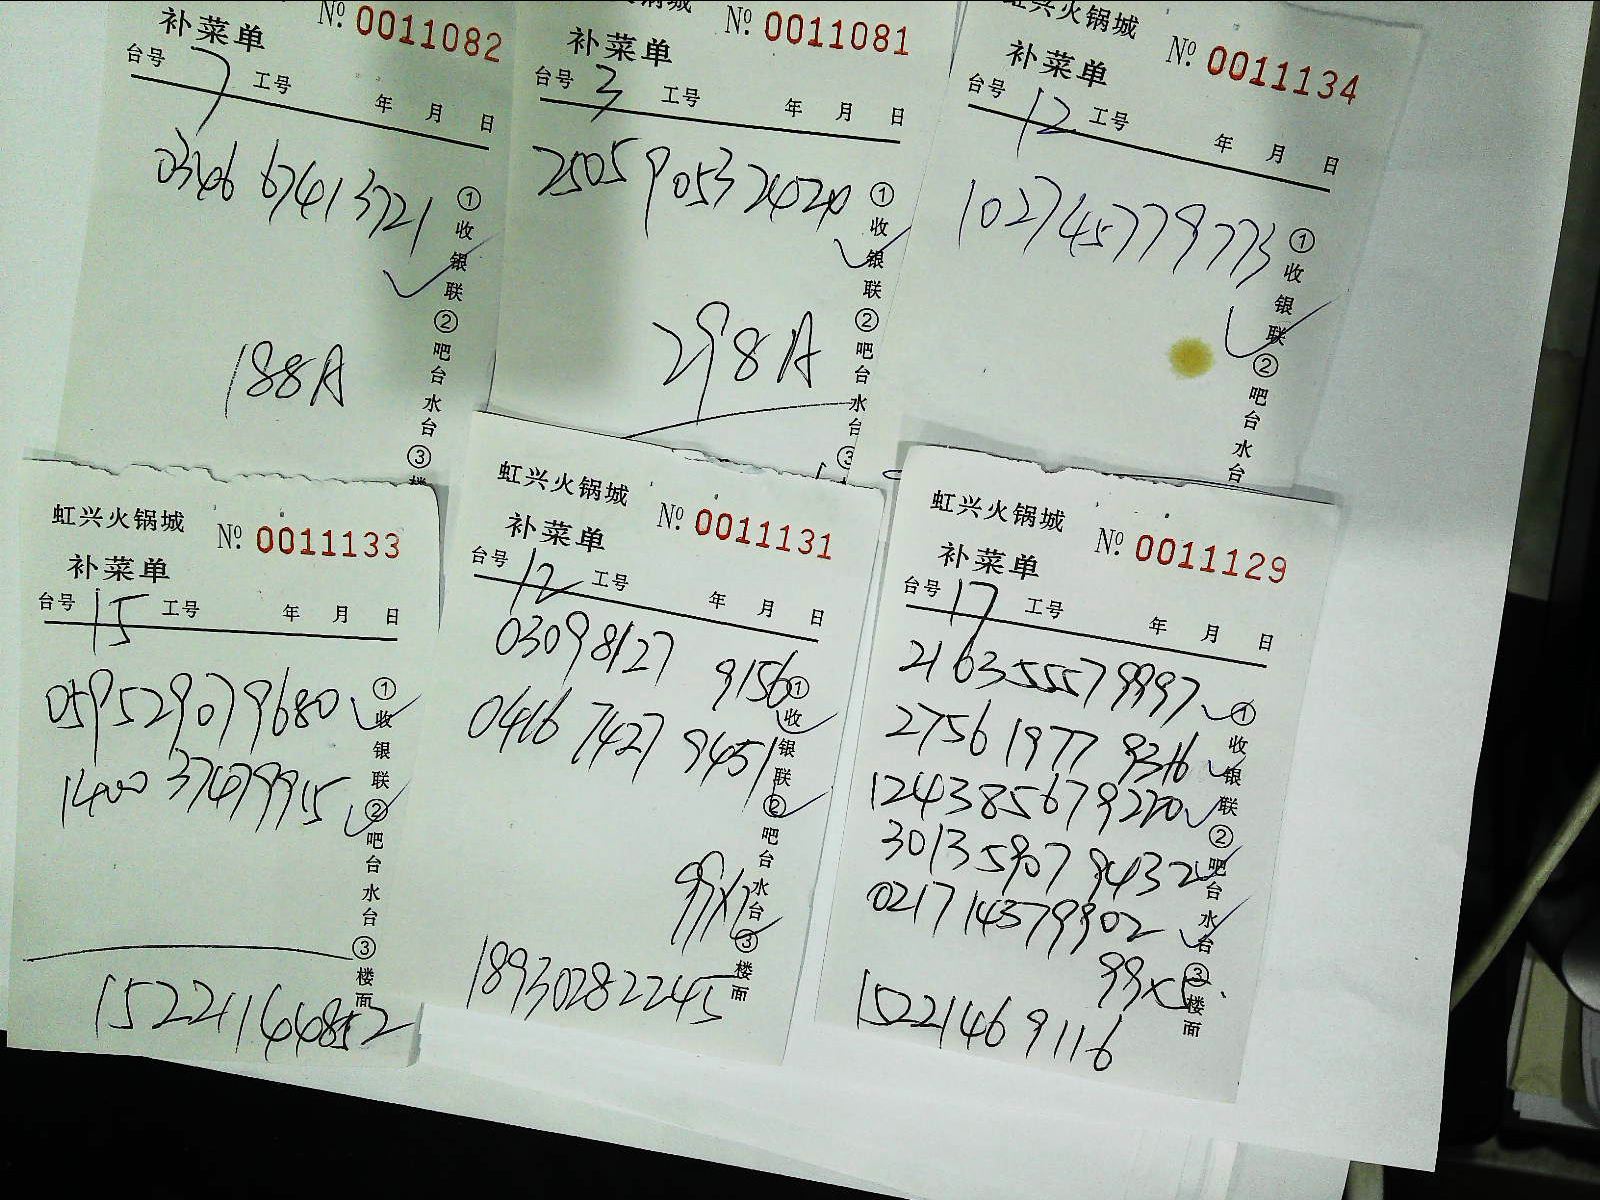 补菜单 Nº 0011082
台号 7 工号 年 月 日
0346 67413721
188A
①收银联②吧台水台③楼
补菜单 Nº 0011081
台号 3 工号 年 月 日
250590532420
298A
①收银联②吧台水台③
虹兴火锅城
补菜单 Nº 0011134
台号 12 工号 年 月 日
102745779773
①收银联②吧台水台
虹兴火锅城
补菜单 Nº 0011133
台号 15 工号 年 月 日
059529079680
1400 37479915
①收银联②吧台水台③楼面
虹兴火锅城
补菜单 Nº 0011131
台号 12 工号 年 月 日
03098127 9156
0416 7427 9451
99x2
18930282245
①收银联②吧台水台③楼面
虹兴火锅城
补菜单 Nº 0011129
台号 17 工号 年 月 日
216355579997
27561977 9316
124385679220
30135907 9432
0217 14579902
99x5
15221469116
①收银联②吧台水台③楼面